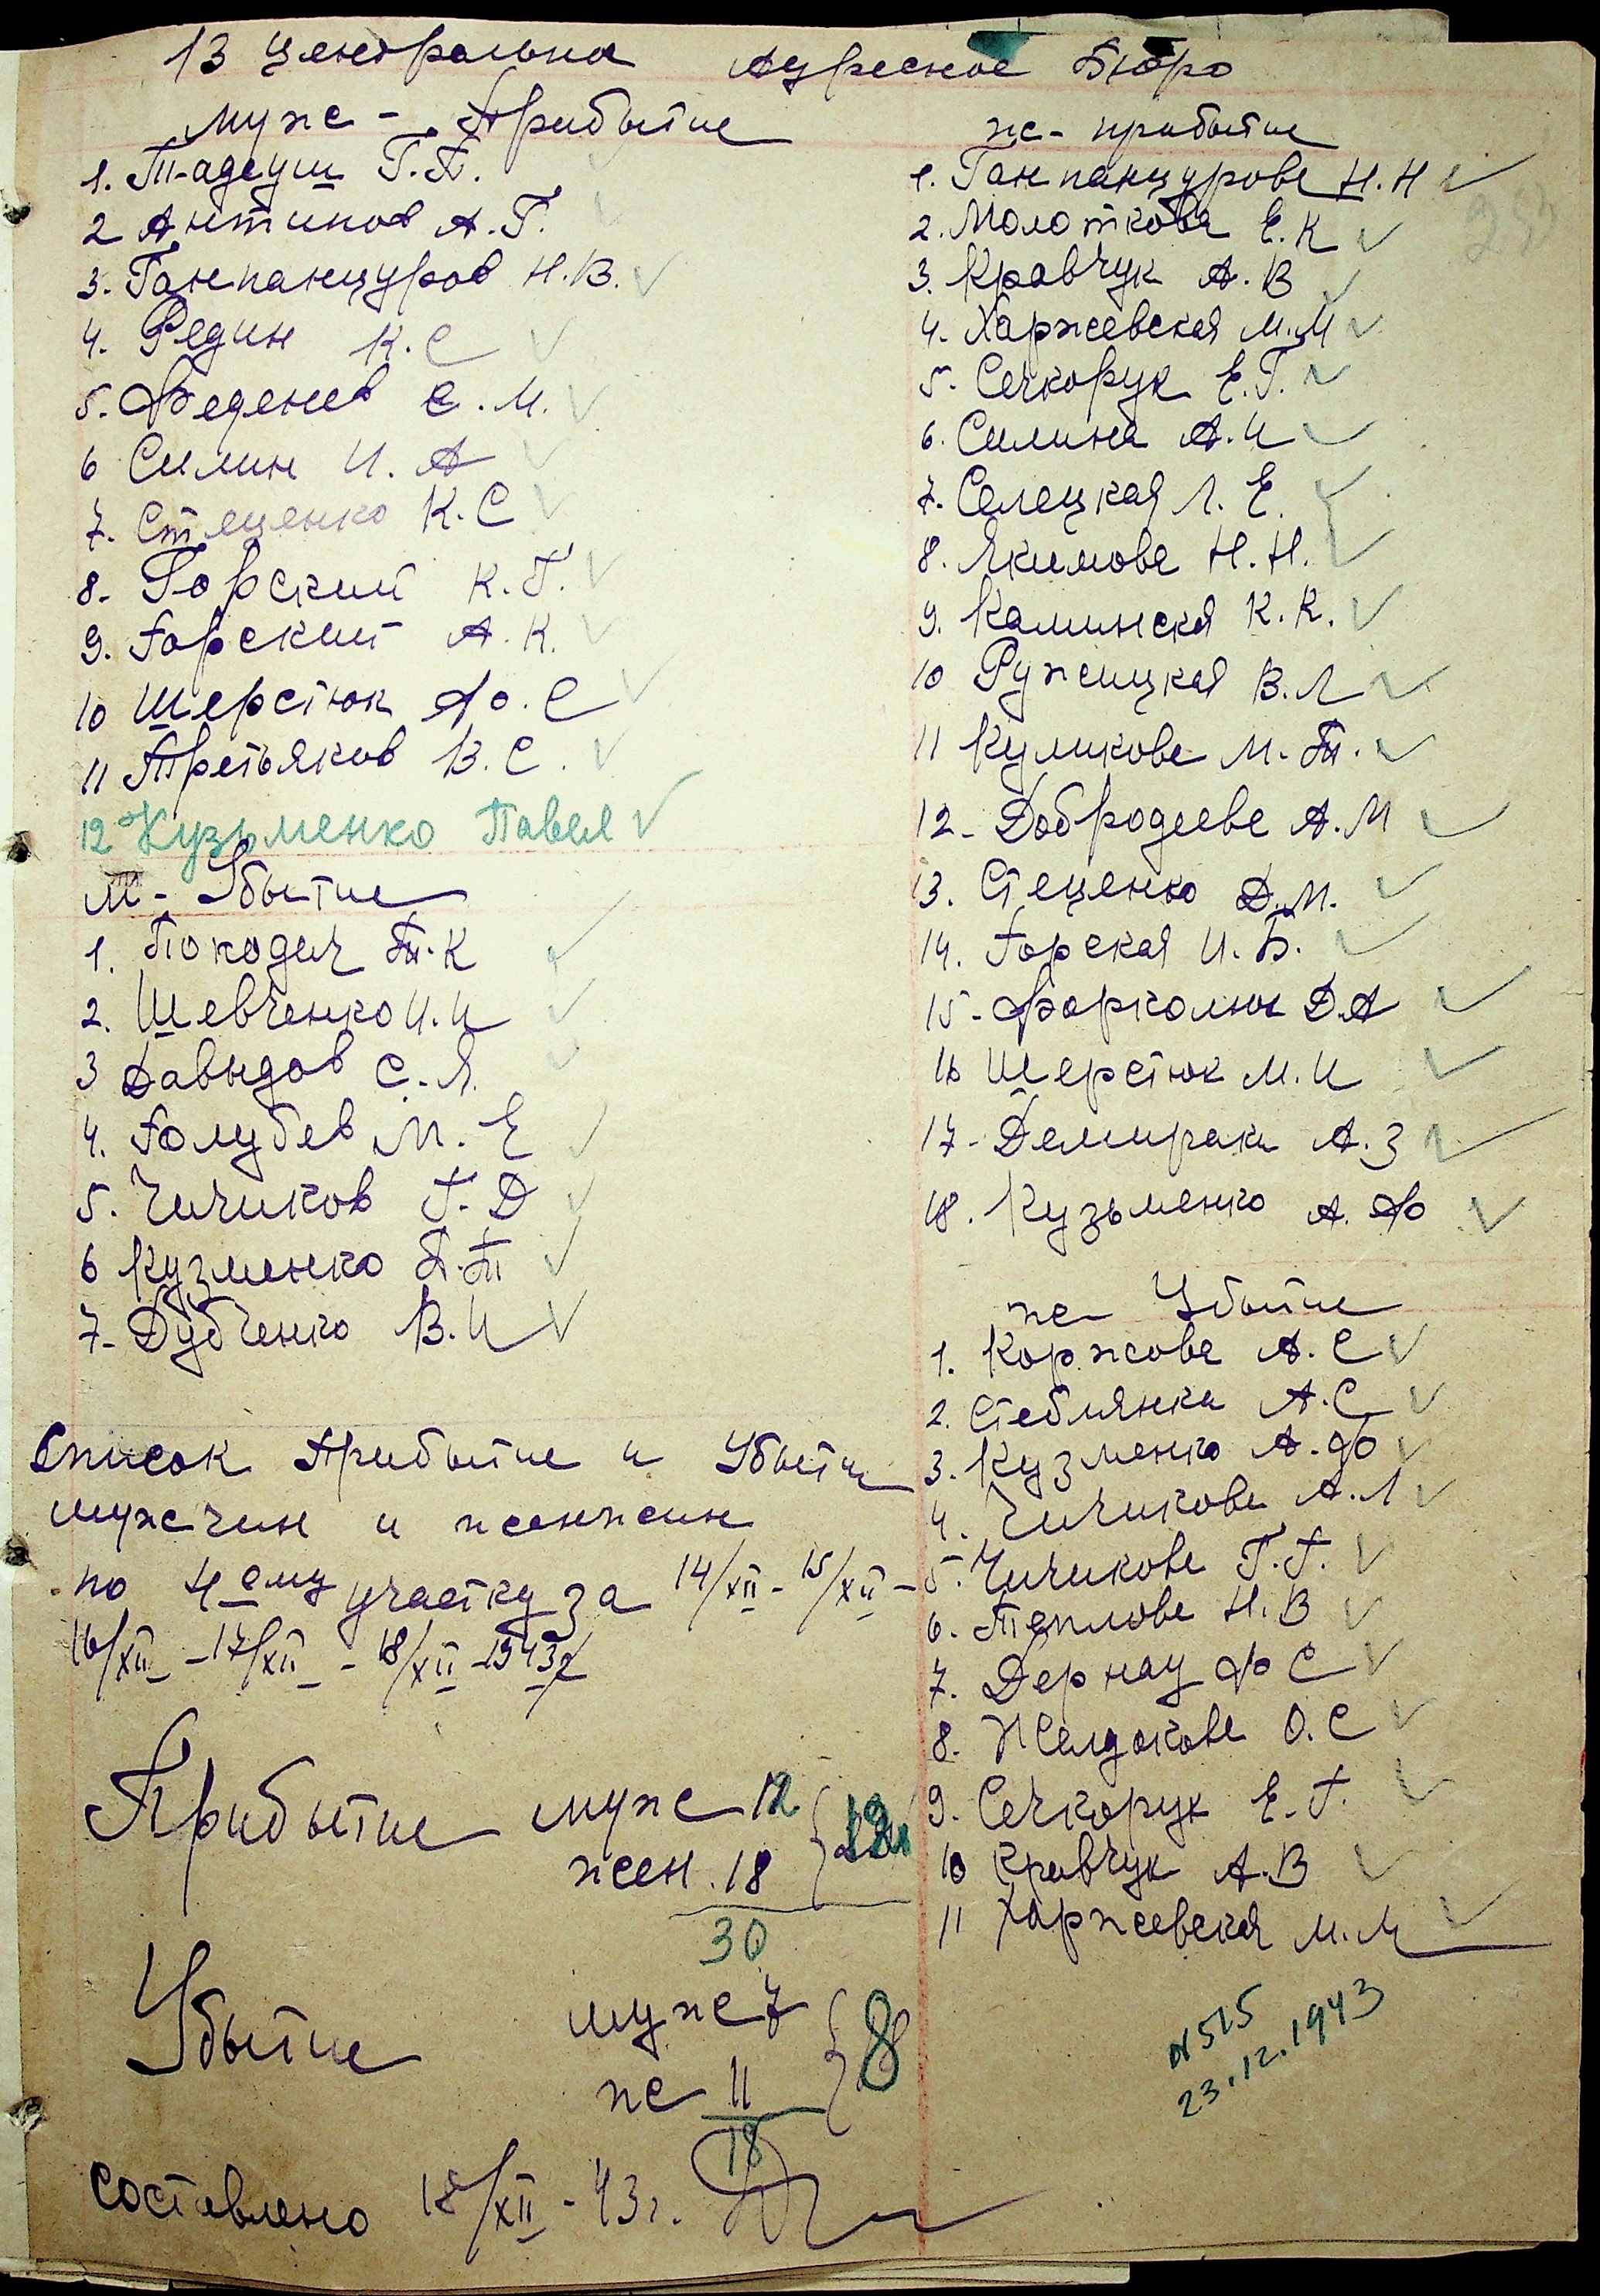 В Центральна Адресное Бюро
муж - Прибытие
1. Тадеуш Г.П.
2 Антипов А.Г.
3. Ганпанцуров Н.В.
4. Редин К.С
5. Феденев Е.М.
6 Силин И.А
7. Стеценко К.С
8. Горский К.Г.
9. Горский А.К.
10 Шерстюк Ф.С
11 Третьяков В.С.
12 Кузьменко Павел
м - Убытие
1. Покодич Т.К
2. Шевченко И.И
3 Давыдов С.Я.
4. Голубев М.Е
5. Чичиков Г.Д
6 Кузменко П.Т
7. Дубченко В.И
Список Прибытие и Убытие
мужчин и женжин
по 4ому участку за 14/XII - 15/XII -
16/XII - 17/XII - 18/XII - 1943г
Прибытие муж 12
жен. 18
30
Убытие муж 7
же 11
8
18
составлено 18/XII - 43г.
же - прибытие
1. Ганпанцурова Н.Н
2. Молоткова Е.К
3. Кравчук А.В
4. Харжевская М.М
5. Сечкорук Е.Г.
6. Силина А.И
7. Селецкая Л.Е.
8. Якимова Н.Н.
9. Каминская К.К.
10 Ружицкая В.Л
11 Куликова М.Т.
12 - Добродеева А.М
13. Стеценко Д.М.
14. Горская И.Б.
15 - Форколин Д.А
16 Шерстюк М.И
17 - Демираки А.З
18. Кузьменко А.Ф
же Убытие
1. Коржова А.С
2. Стеблянки А.С
3. Кузменко А.Ф
4. Чичикова А.Л
5. Чичикова Г.Г.
6. Теплова Н.В
7. Дернау Ф С
8. Желдакова О.С
9. Сечкорук Е.Г.
10 Кравчук А.В
11 Харжевская М.М
N 515
23.12.1943